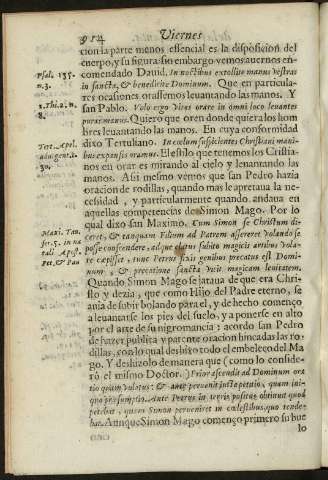 914 Viernes
cion la parte menos essencial es la disposicion del
cuerpo, y su figura: sin embargo vemos auernos en-
comendado Dauid. In noctibus extollite manus vestras
in sancta, & benedicite Dominum. Que en particula-
res ocasiones orassemos leuantando las manos. Y
san Pablo. Volo ergo viros orare in omni loco leuantes
puras manus. Quiero que oren donde quiera los hom
bres leuantando las manos. En cuya conformidad
dixo Tertuliano. In cœlum suspicientes Christiani mani-
bus expansis oramus. El estilo que tenemos los Christia-
nos en orar es mirando al cielo y leuantando las
manos. Assi mesmo vemos que san Pedro hazia
oracion de rodillas, quando mas le apretaua la ne-
cessidad, y particularmente quando andaua en
aquellas competencias de Simon Mago. Por lo
qual dixo san Maximo. Cum Simon se Christum di-
ceret, & tanquam Filium ad Patrem assereret volando se
posse conscendere, adque elatus subito magicis artibus vola-
re cœpisset, tunc Petrus fixis genibus precatus est Domi-
num, & precatione sancta vicit magicam leuitatem.
Quando Simon Mago se jataua de que era Chris-
to y dezia, que como Hijo del Padre eterno, se
auia de subir bolando para el, y de hecho començo
a leuantarse los pies del suelo, y a ponerse en alto
por el arte de su nigromancia: acordo san Pedro
de hazer publica y patente oracion hincadas las ro-
dillas, con lo qual deshizo todo el embeleco del Ma
go. Y deshizolo de manera que (como lo conside-
rò el mismo Doctor.) Prior ascendit ad Dominum ora
tio quàm volatus: & ante peruenit iusta petitio, quam ini-
qua præsumptio. Ante Petrus in terris positus obtinuit quod
petebat, quam Simon perueniret in cœlestibus, quo tende-
bat. Aunque Simon Mago començo primero su bue
lo
Psal. 135.
n. 3.
1. Thi. 2. n.
8.
Tert. Apol.
adu. gent. c.
30.
Maxi. Tau.
ser. 5. in na
tali Apost.
Pet. & Pau